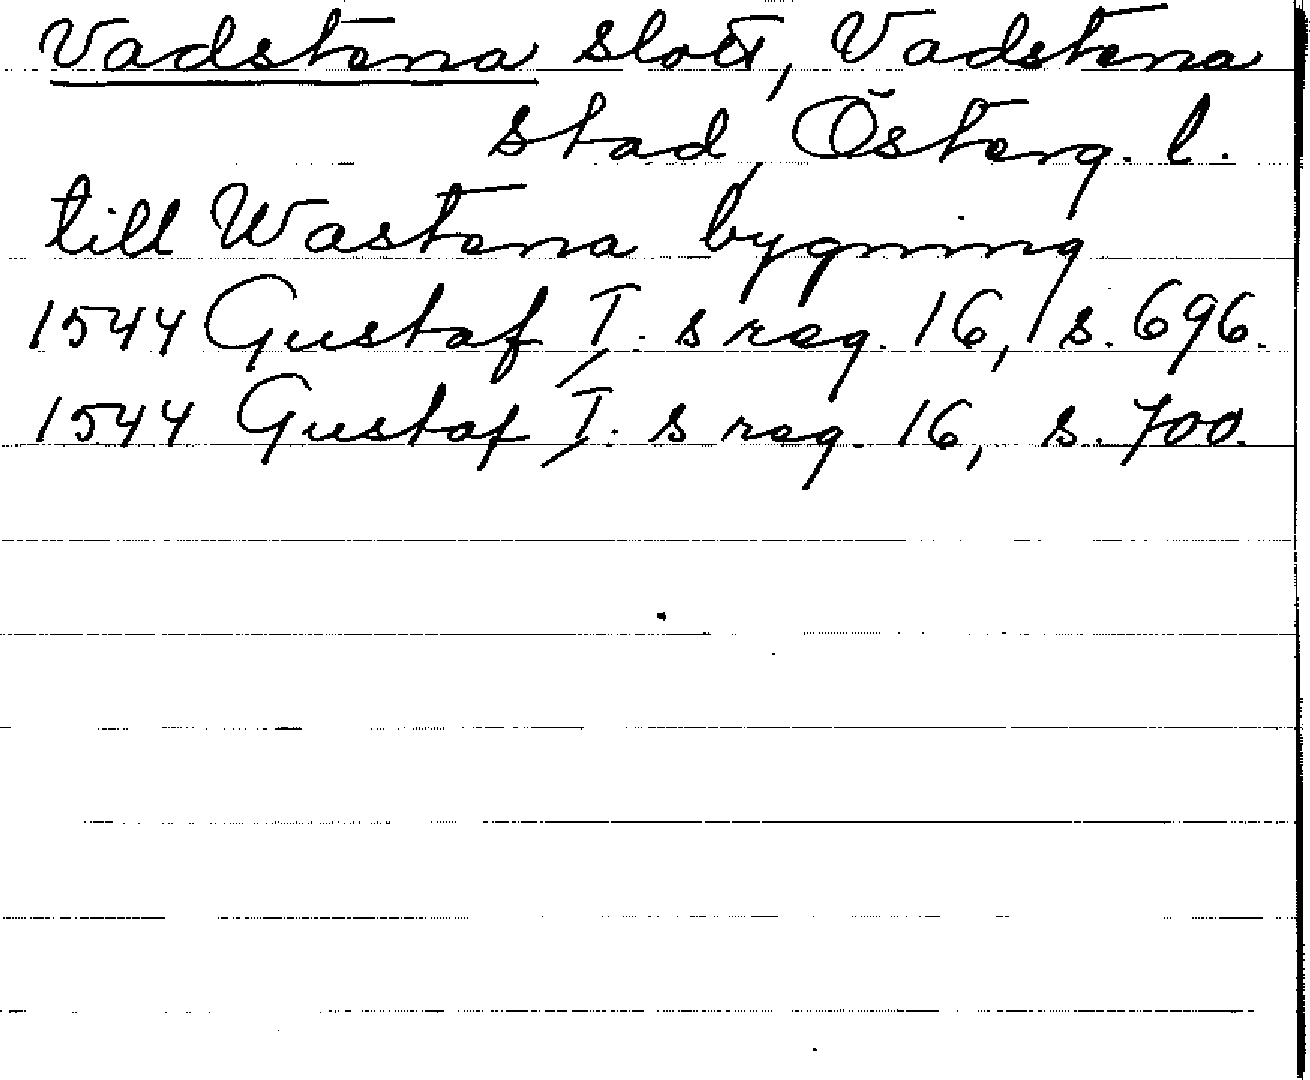 Vadstena slott, Vadstena
stad, Österg. l.
till Wastena bygning
1544 Gustaf I. s reg. 16, s. 696.
1544 Gustaf I. s reg. 16, s. 700.